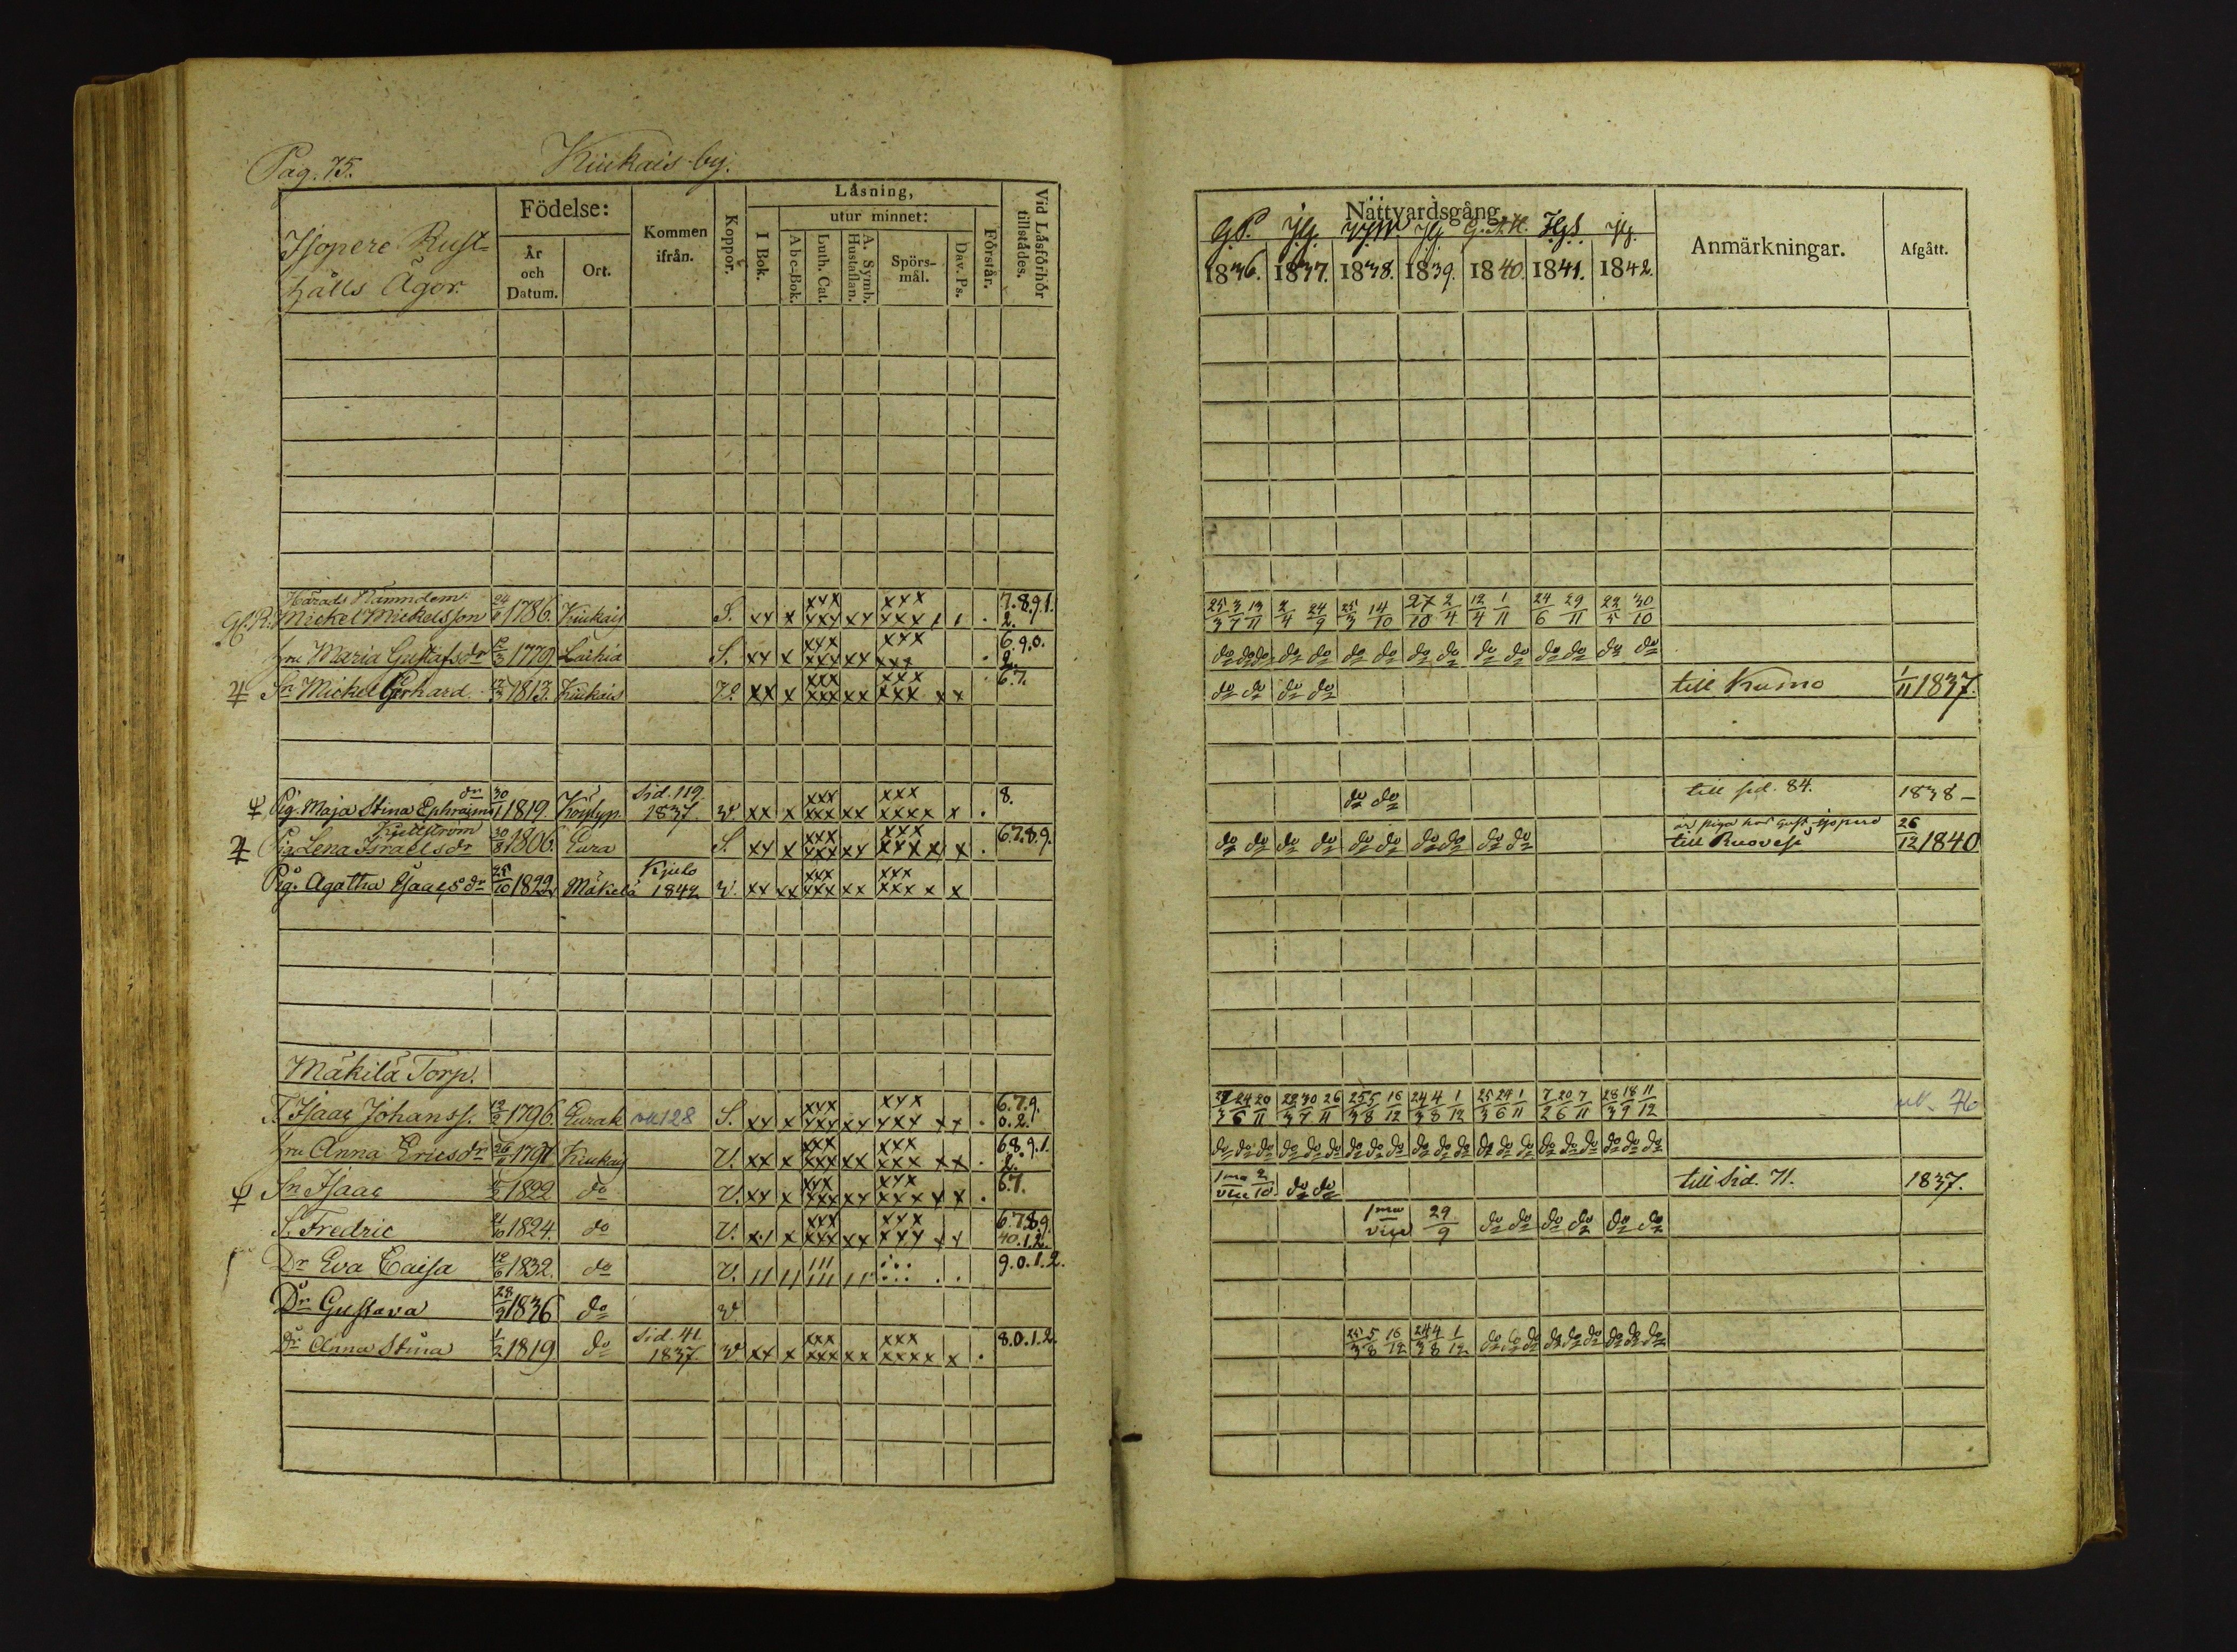 Pag. 75. Kiukais by.
Isopere Rust-
hålls Ägor.
Födelse:
År och Datum.
Ort.
Kommen ifrån.
Koppor.
Läsning,
I Bok.
utur minnet:
Abc-Bok.
Luth. Cat.
A. Symb. Hustaflan.
Spörs-mål.
Dav. Ps.
Förstår.
Vid Läsförhör tillstädes.
Nattvardsgång
1836. 1837. 1838. 1839. 1840. 1841. 1842.
Anmärkningar.
Afgått.
Härads Nämndem.
Mickel Mickelsson 1786. Kiukais S. xx x xxx xxx xx xxx xxx 7.8.9.1. 2. 25/3 3/7 13/11 2/4 24/9 25/3 14/10 27/10 2/4 12/4 1/11 24/6 29/11 22/5 30/10
hu Maria Gustafsdr 12/3 1779 S. xx x xxx xxx xx xxx xxx 6.9.0. 2. do do do do do do do do do do do do do do do
Sn Mickel Gerhard 1813. Kiukais V. xx x xxx xxx xx xxx xxx xx 6.7. do do do do till Kumo 1/11 1837.
Pig. Maja Stina Ephraimsdr 30/11 1819. Sid. 119. 1837. v xx x xxx xxx xx xxx xxxx x . 8. do do till sid. 84. 1838-
Pig. Lena Israelsdr 30/8 1806. Eura S. xx x xxx xxx xx xxx xxxx x . 6.7.8.9. do do do do do do do do do do till Ruovesi 26/12 1840
Pig. Agatha Isaacsdr 25/10 1822 Mäkelä Kjulo 1842 v. xx xx xxx xxx xx xxx xxx x x
Mäkilä Torp.
T. Isaac Johanss. 12/2 1796. Eurak 128 S. xx x xxx xxx xx xxx xxx xx . 6.7.9. 0.2. 27/3 24/6 20/11 22/3 30/7 26/11 25/3 5/8 16/12 24/3 4/8 1/12 25/3 24/6 1/11 7/2 20/6 7/11 28/3 18/9 11/12 76
hu Anna Ericsdr 26/11 1791 Kiukais V. xx x xxx xxx xx xxx xxx xx . 6.8.9.1. 2. do do do do do do do do do do do do do do do do do do do do do
Sn Isaac 1822 do V. xx x xxx xxx xx xxx xxx x x . 6.7. 1ma vice 2/10 do do till Sid. 71. 1837.
S. Fredric 1824. do V. x x xxx xxx xx xxx xxx xx 6.7.8.9. 40.1.2. 1ma vice 29/9 do do do do do do
Dr Eva Caisa 12/6 1832. do V. 9.0.1.2.
Dr Gustava 28/9 1836 do v
Dr Anna Stina 1/2 1819 do Sid. 41 1837. v. xx x xxx xxx xx xxx xxxx x . 8.0.1.2. 25/3 5/8 16/12 24/3 4/8 1/12 do do do do do do do do do